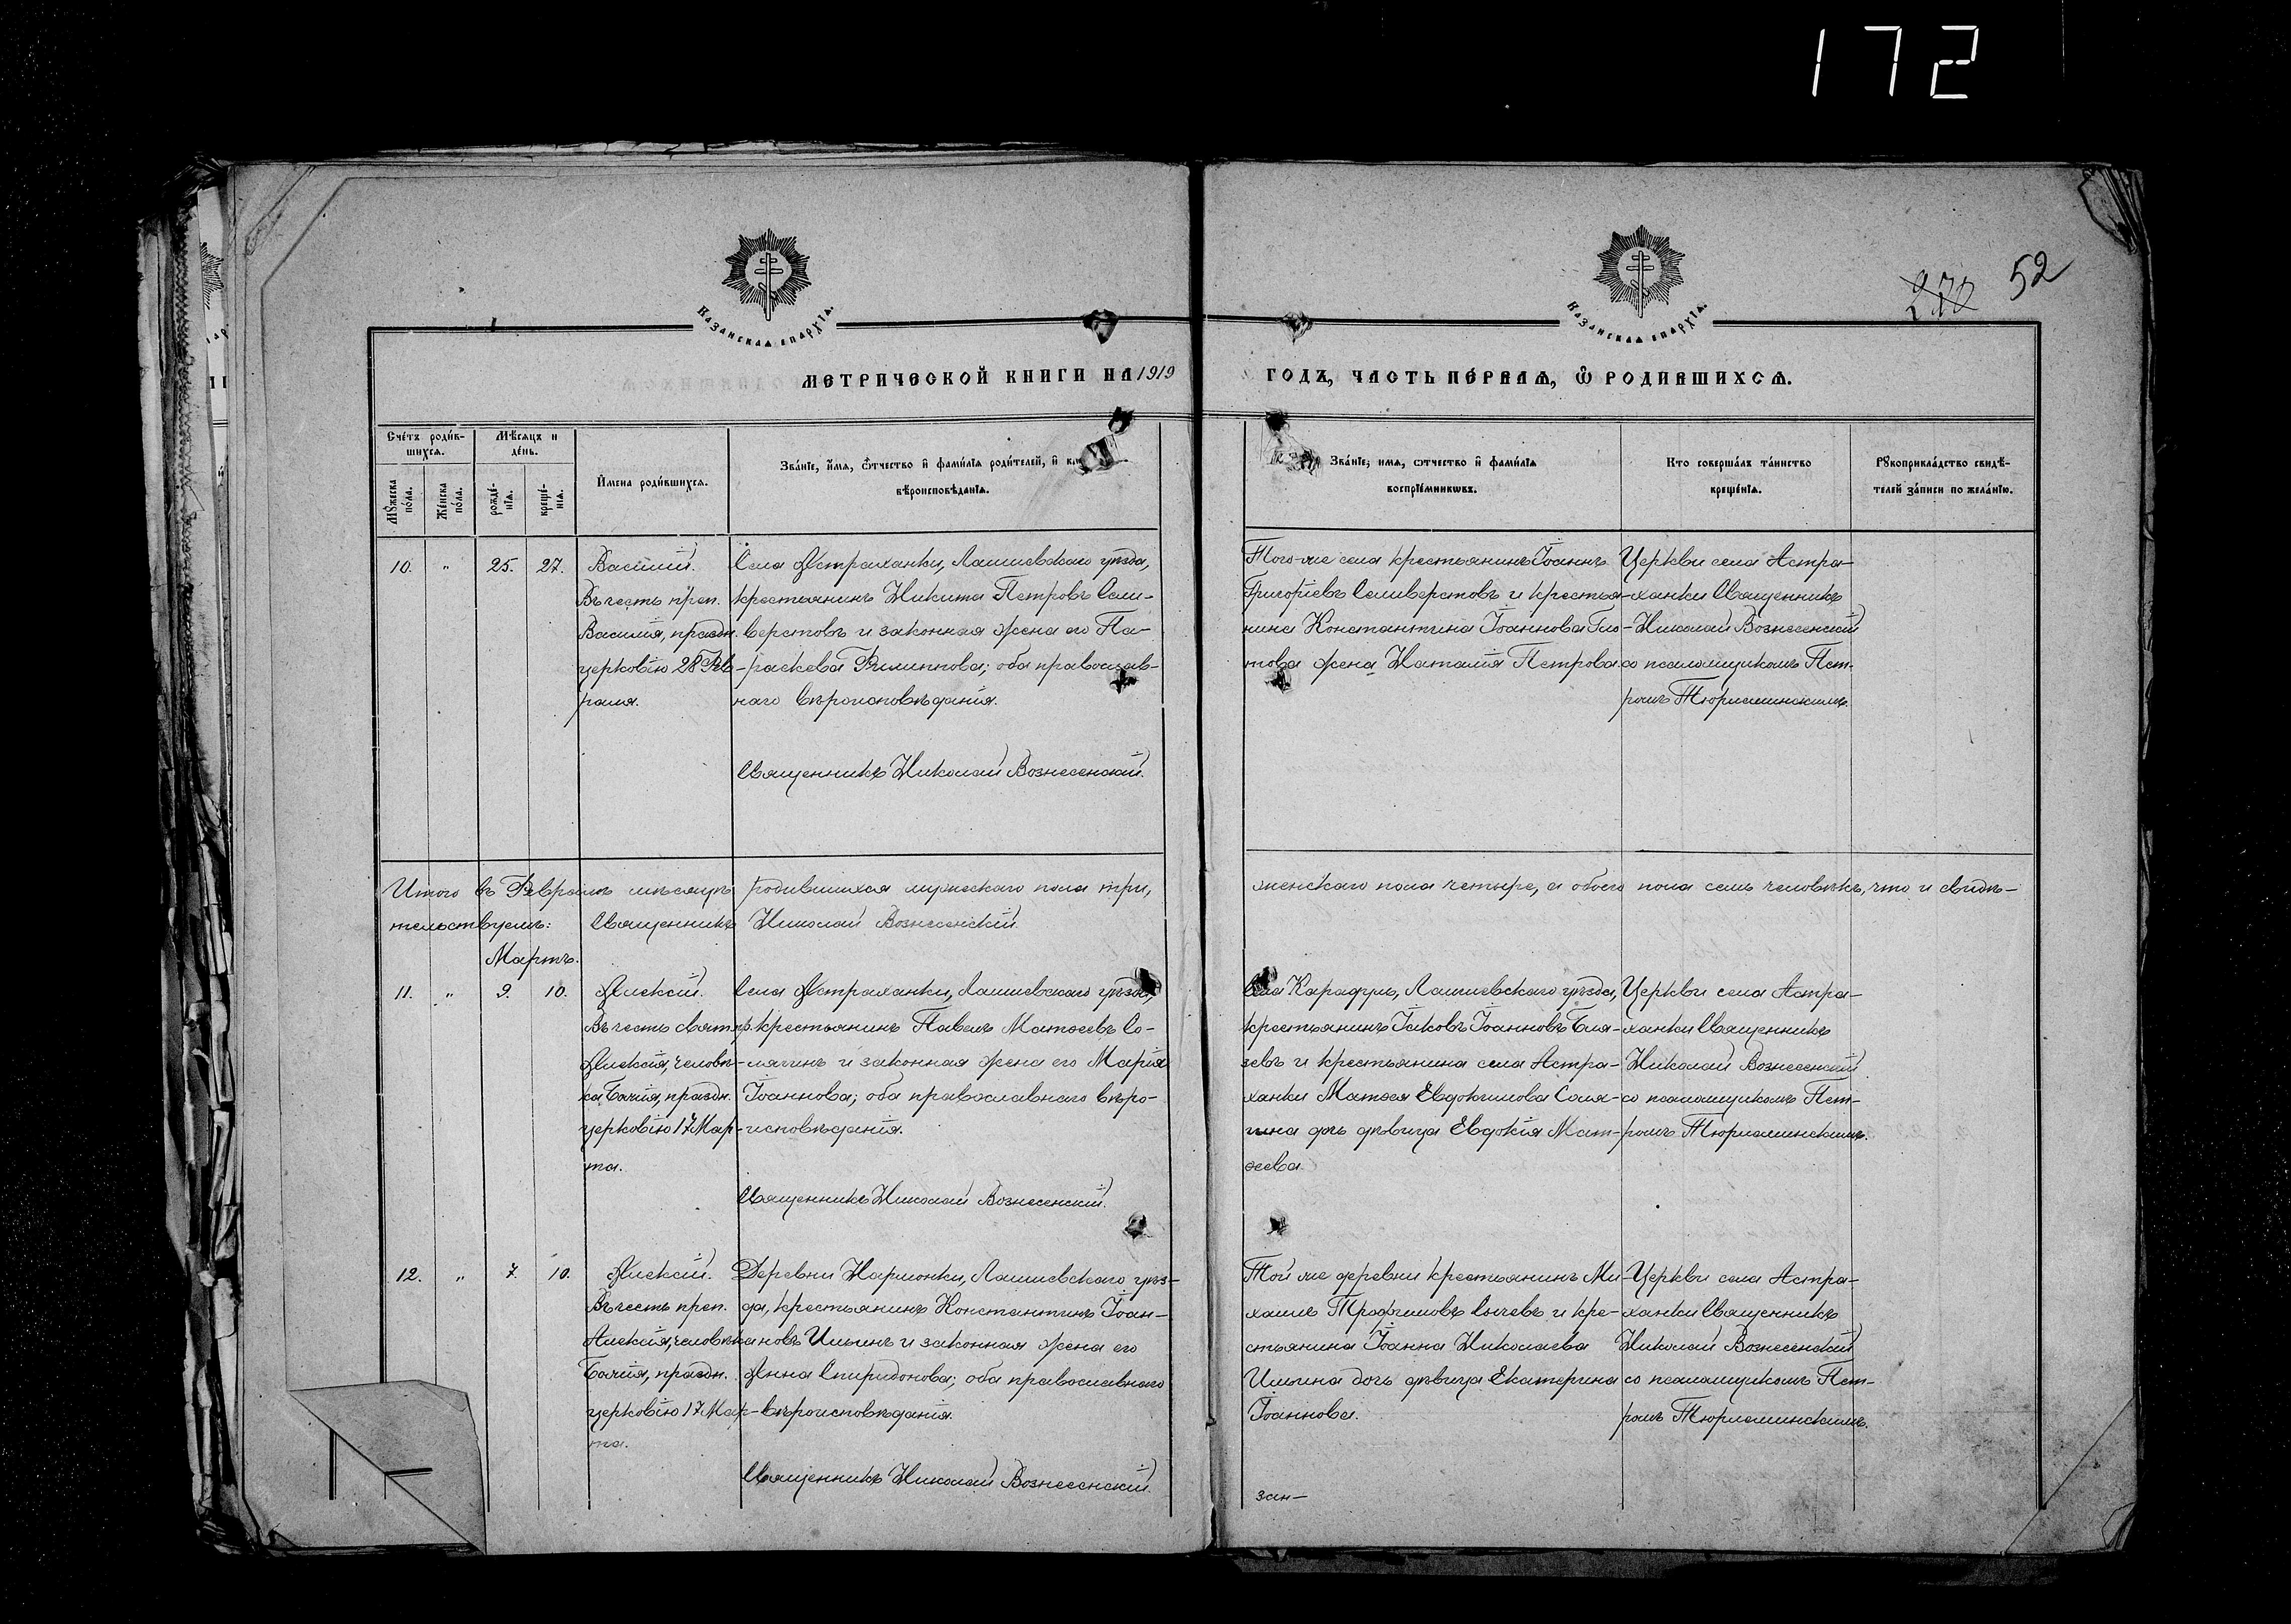 172
270 52
Казанская епархія.
Казанская епархія.
Метрической книги на 1919
годъ, часть первая, ѡ родившихся.
Счетъ родившихся.
Мѣсяцъ и день.
Мужеска пола.
Женска пола.
рожденія.
крещенія.
Имена родившихся.
Званіе, имя, ѿчество и фамилія родителей, и
вѣроисповѣданія.
Званіе, имя, ѿчество и фамилія
воспріемникѡвъ.
Кто совершалъ таинство
крещенія.
Рукоприкладство свидѣ-
телей записи по желанію.
10. " 25. 27.
Василій.
Въ честь преп.
Василія, праздн.
церковію 28 Фев-
раля.
Села Астраханки, Лаишевскаго уѣзда,
крестьянинъ Никита Петровъ Сели-
верстовъ и законная жена его Па-
раскева Филиппова; оба православ-
наго вѣроисповѣданія.
Священникъ Николай Вознесенскій.
Того-же села крестьянинъ Іоаннъ
Григоріевъ Селиверстовъ и крестья-
нина Константина Іоаннова
това жена Наталія Петрова
Церкви села Астра-
ханки Священникъ
Николай Вознесенскій
со псаломщикомъ Пет-
ромъ Тюрлеминскимъ.
Итого въ Февралѣ мѣсяцѣ родившихся мужескаго пола три,
женскаго пола четыре, а обоего пола семь человѣкъ, что и свидѣ-
тельствуемъ: Священникъ Николай Вознесенскій
Мартъ.
11. " 9. 10.
Алексій.
Въ честь свят.
Алексія, человѣ-
ка Божія, праздн.
церковію 17 Мар-
та.
Села Астраханки, Лаишевскаго уѣзда,
крестьянинъ Павелъ Матѳеевъ Со-
лягинъ и законная жена его Марія
Іоаннова; оба православнаго вѣро-
исповѣданія.
Священникъ Николай Вознесенскій.
Села Карадули, Лаишевскаго уѣзда,
крестьянинъ Іаковъ Іоанновъ Бля-
зевъ и крестьянина села Астра-
ханки Матѳея Евдокимова Соля-
гина дочь дѣвица Евдокія Мат-
ѳеева.
Церкви села Астра-
ханки Священникъ
Николай Вознесенскій
со псаломщикомъ Пет-
ромъ Тюрлеминскимъ.
12. " 7. 10.
Алексій.
Въ честь преп.
Алексія, человѣка
Божія, праздн.
церковію 17 Мар-
та.
Деревни Нармонки, Лаишевскаго уѣз-
да, крестьянинъ Константинъ Іоан-
новъ Ильинъ и законная жена его
Анна Спиридонова; оба православнаго
вѣроисповѣданія.
Священникъ Николай Вознесенскій.
Той же деревни крестьянинъ Ми-
хаилъ Трофимовъ Сычевъ и кре-
стьянина Іоанна Николаева
Ильина дочь дѣвица Екатерина
Іоаннова.
Церкви села Астра-
ханки Священникъ
Николай Вознесенскій
со псаломщикомъ Пет-
ромъ Тюрлеминскимъ.
зан-